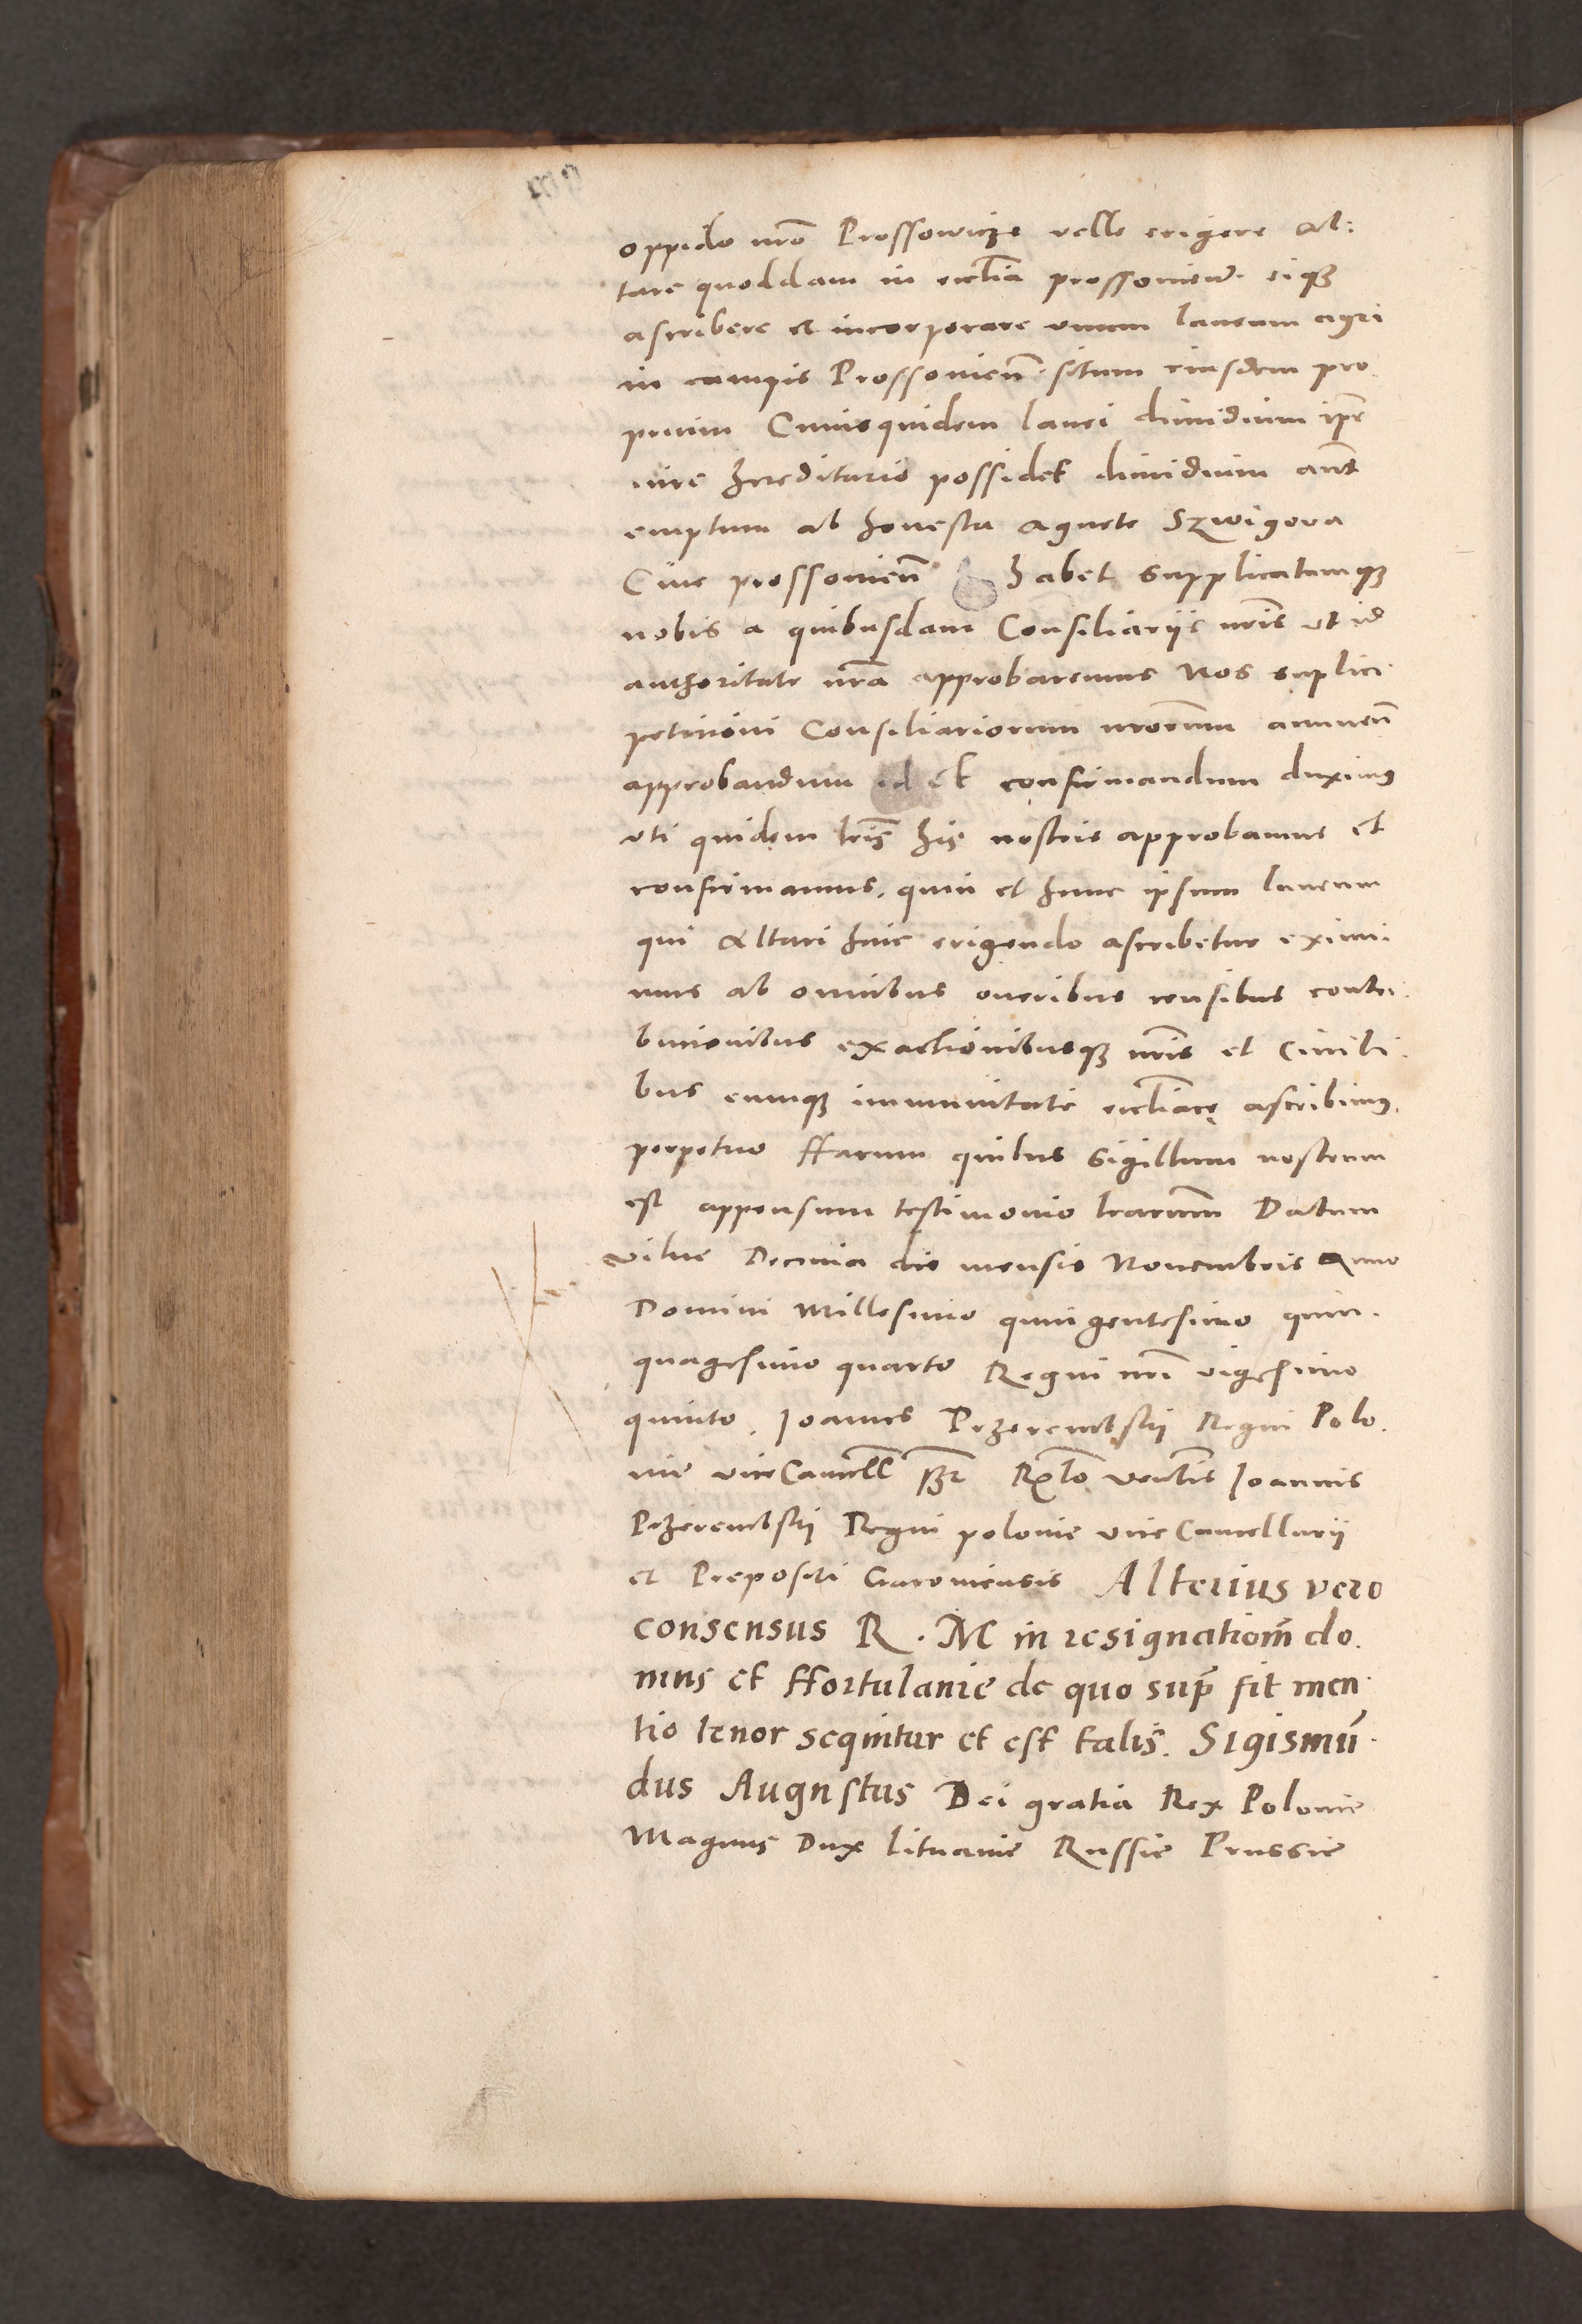 oppido nrõ Prossowicze velle erigere Al:
tare quoddam in ecclia prossovien. eiqꝫ
ascribere et incorporare unum laneum agri
in campis Prossovien̄. situm eiusdem pro
prium Cuiusquidem lanei dimidium ip̄e
iure hereditario possidet dimidium aut̄
emptum ab honesta Agnete Szwigova
Cive prossovien̄ habet supplicatumqꝫ
nobis a quibusdam Consiliariis nr̄is ut id
authoritate nr̄a approbaremus Nos suplici
petitioni Consiliariorum nrorum annuen̄
approbandum id et confirmandum duximus
uti quidem lr̄is his nostris approbamus et
confirmamus. quin et hunc ipsum laneum
qui Altari huic erigendo ascribetur eximi
mus ab omnibus oneribus censibus contri.
butionibus exactionibusqꝫ nr̄is et civili.
bus eumqꝫ immunitati eccliacę ascribimus.
perpetuo Harum quibus Sigillum nostrum
est appensum testimonio lrarum Datum
vilne Decima die mensis Novembris Anno
Domini Millesimo quingentesimo quin.
quagesimo quarto Regni nr̄i vigesimo
quinto. Ioannes Przerembskij Regni Polo.
nie viceCancell̄ s̄s̄t R̄lo Ven̄lis Ioannis
Przerembskij Regni polonie vice Cancellarii
et Prepositi Cracoviensis Alterius vero
consensus R. M in resignatiom̄ do.
mus et Hortulanie de quo sup̄ fit men
tio tenor sequitur et est talis. Sigismū
dus Augustus Dei gratia Rex Polonie
Magnus Dux lituanie Russie Prussie